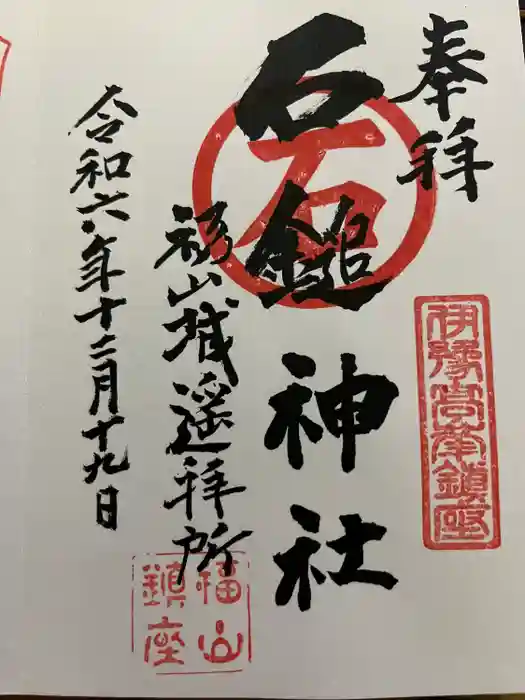 奉拝
石
石鎚神社
伊豫高峯鎮座
福山城遥拝所
福山鎮座
令和六年十二月十九日